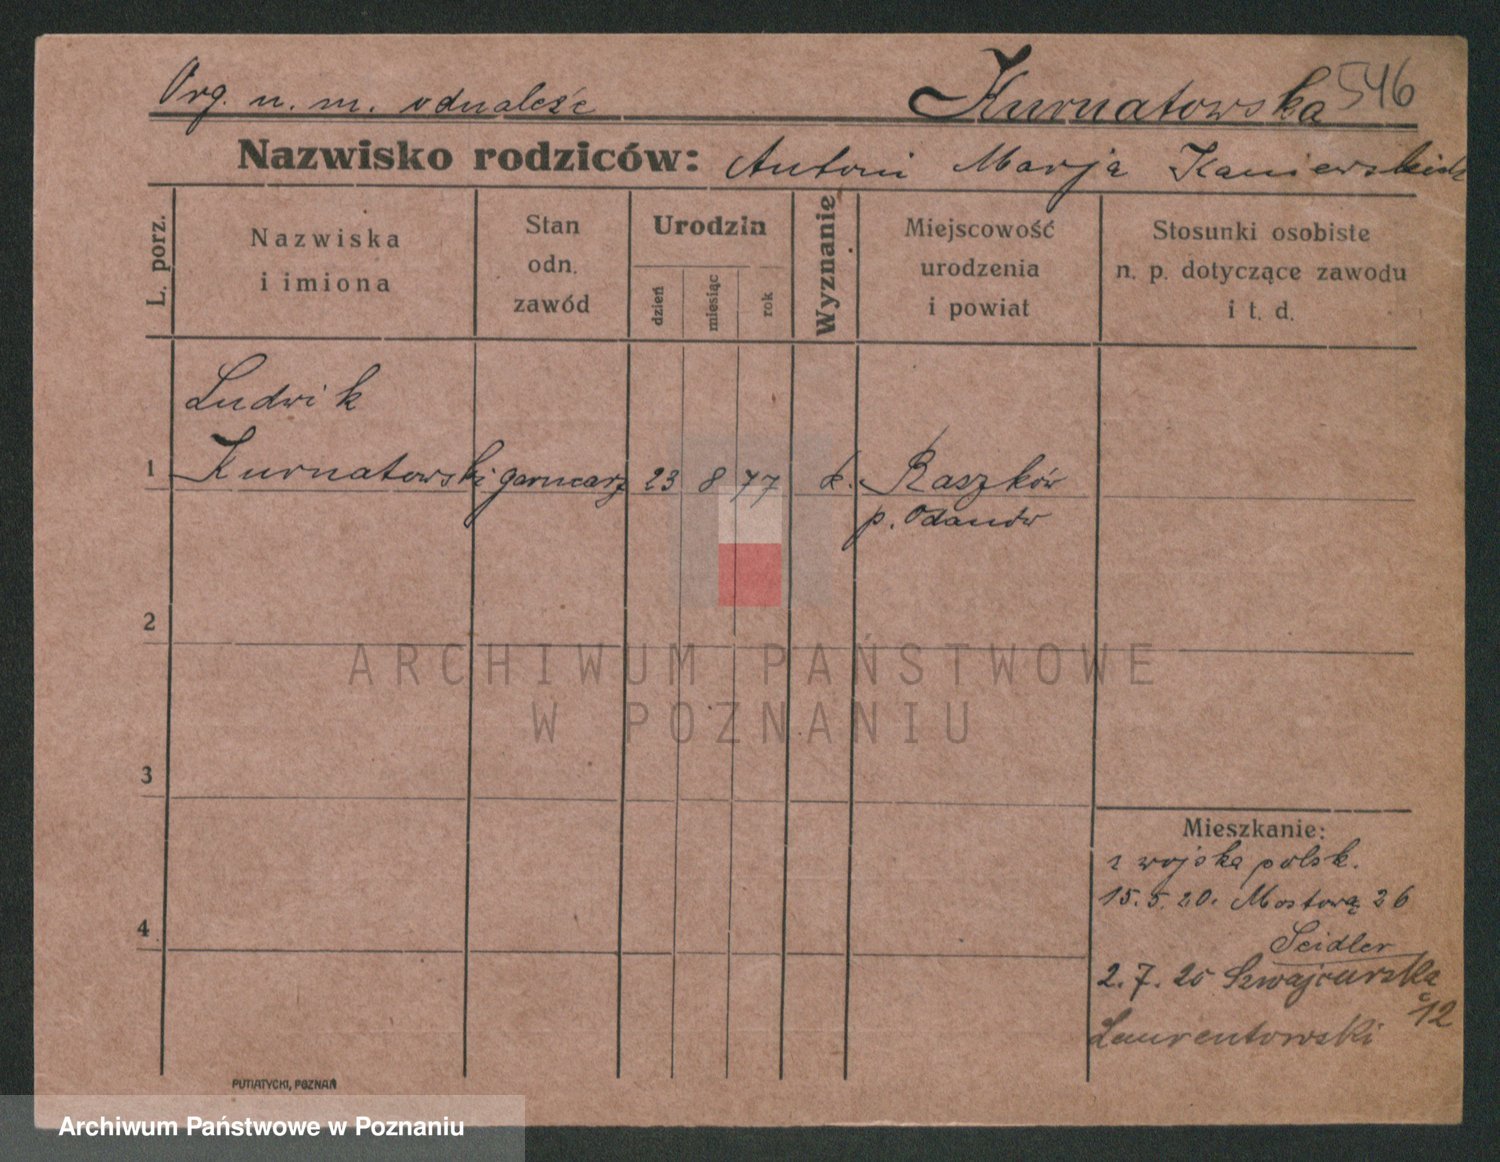 Org. n. m. odnaleźć Kurnatowska 546
Nazwisko rodziców: Antoni Marja
L. porz.
Nazwiska
i imiona
Stan
odn.
zawód
Urodzin
dzień
miesiąc
rok
Wyznanie
Miejscowość
urodzenia
i powiat
Stosunki osobiste
n. p. dotyczące zawodu
i t. d.
Ludwik
1 Kurnatowski garncarz 23 8 77 k. Raszków
p. Odanów
2
3
4
Mieszkanie:
z wojska polsk.
15.5.20. Mostowa 26
Seidler
2.7.20 Szwajcarska
12
Laurentowski
PUTIATYCKI, POZNAŃ
ARCHIWUM PAŃSTWOWE
W POZNANIU
Archiwum Państwowe w Poznaniu